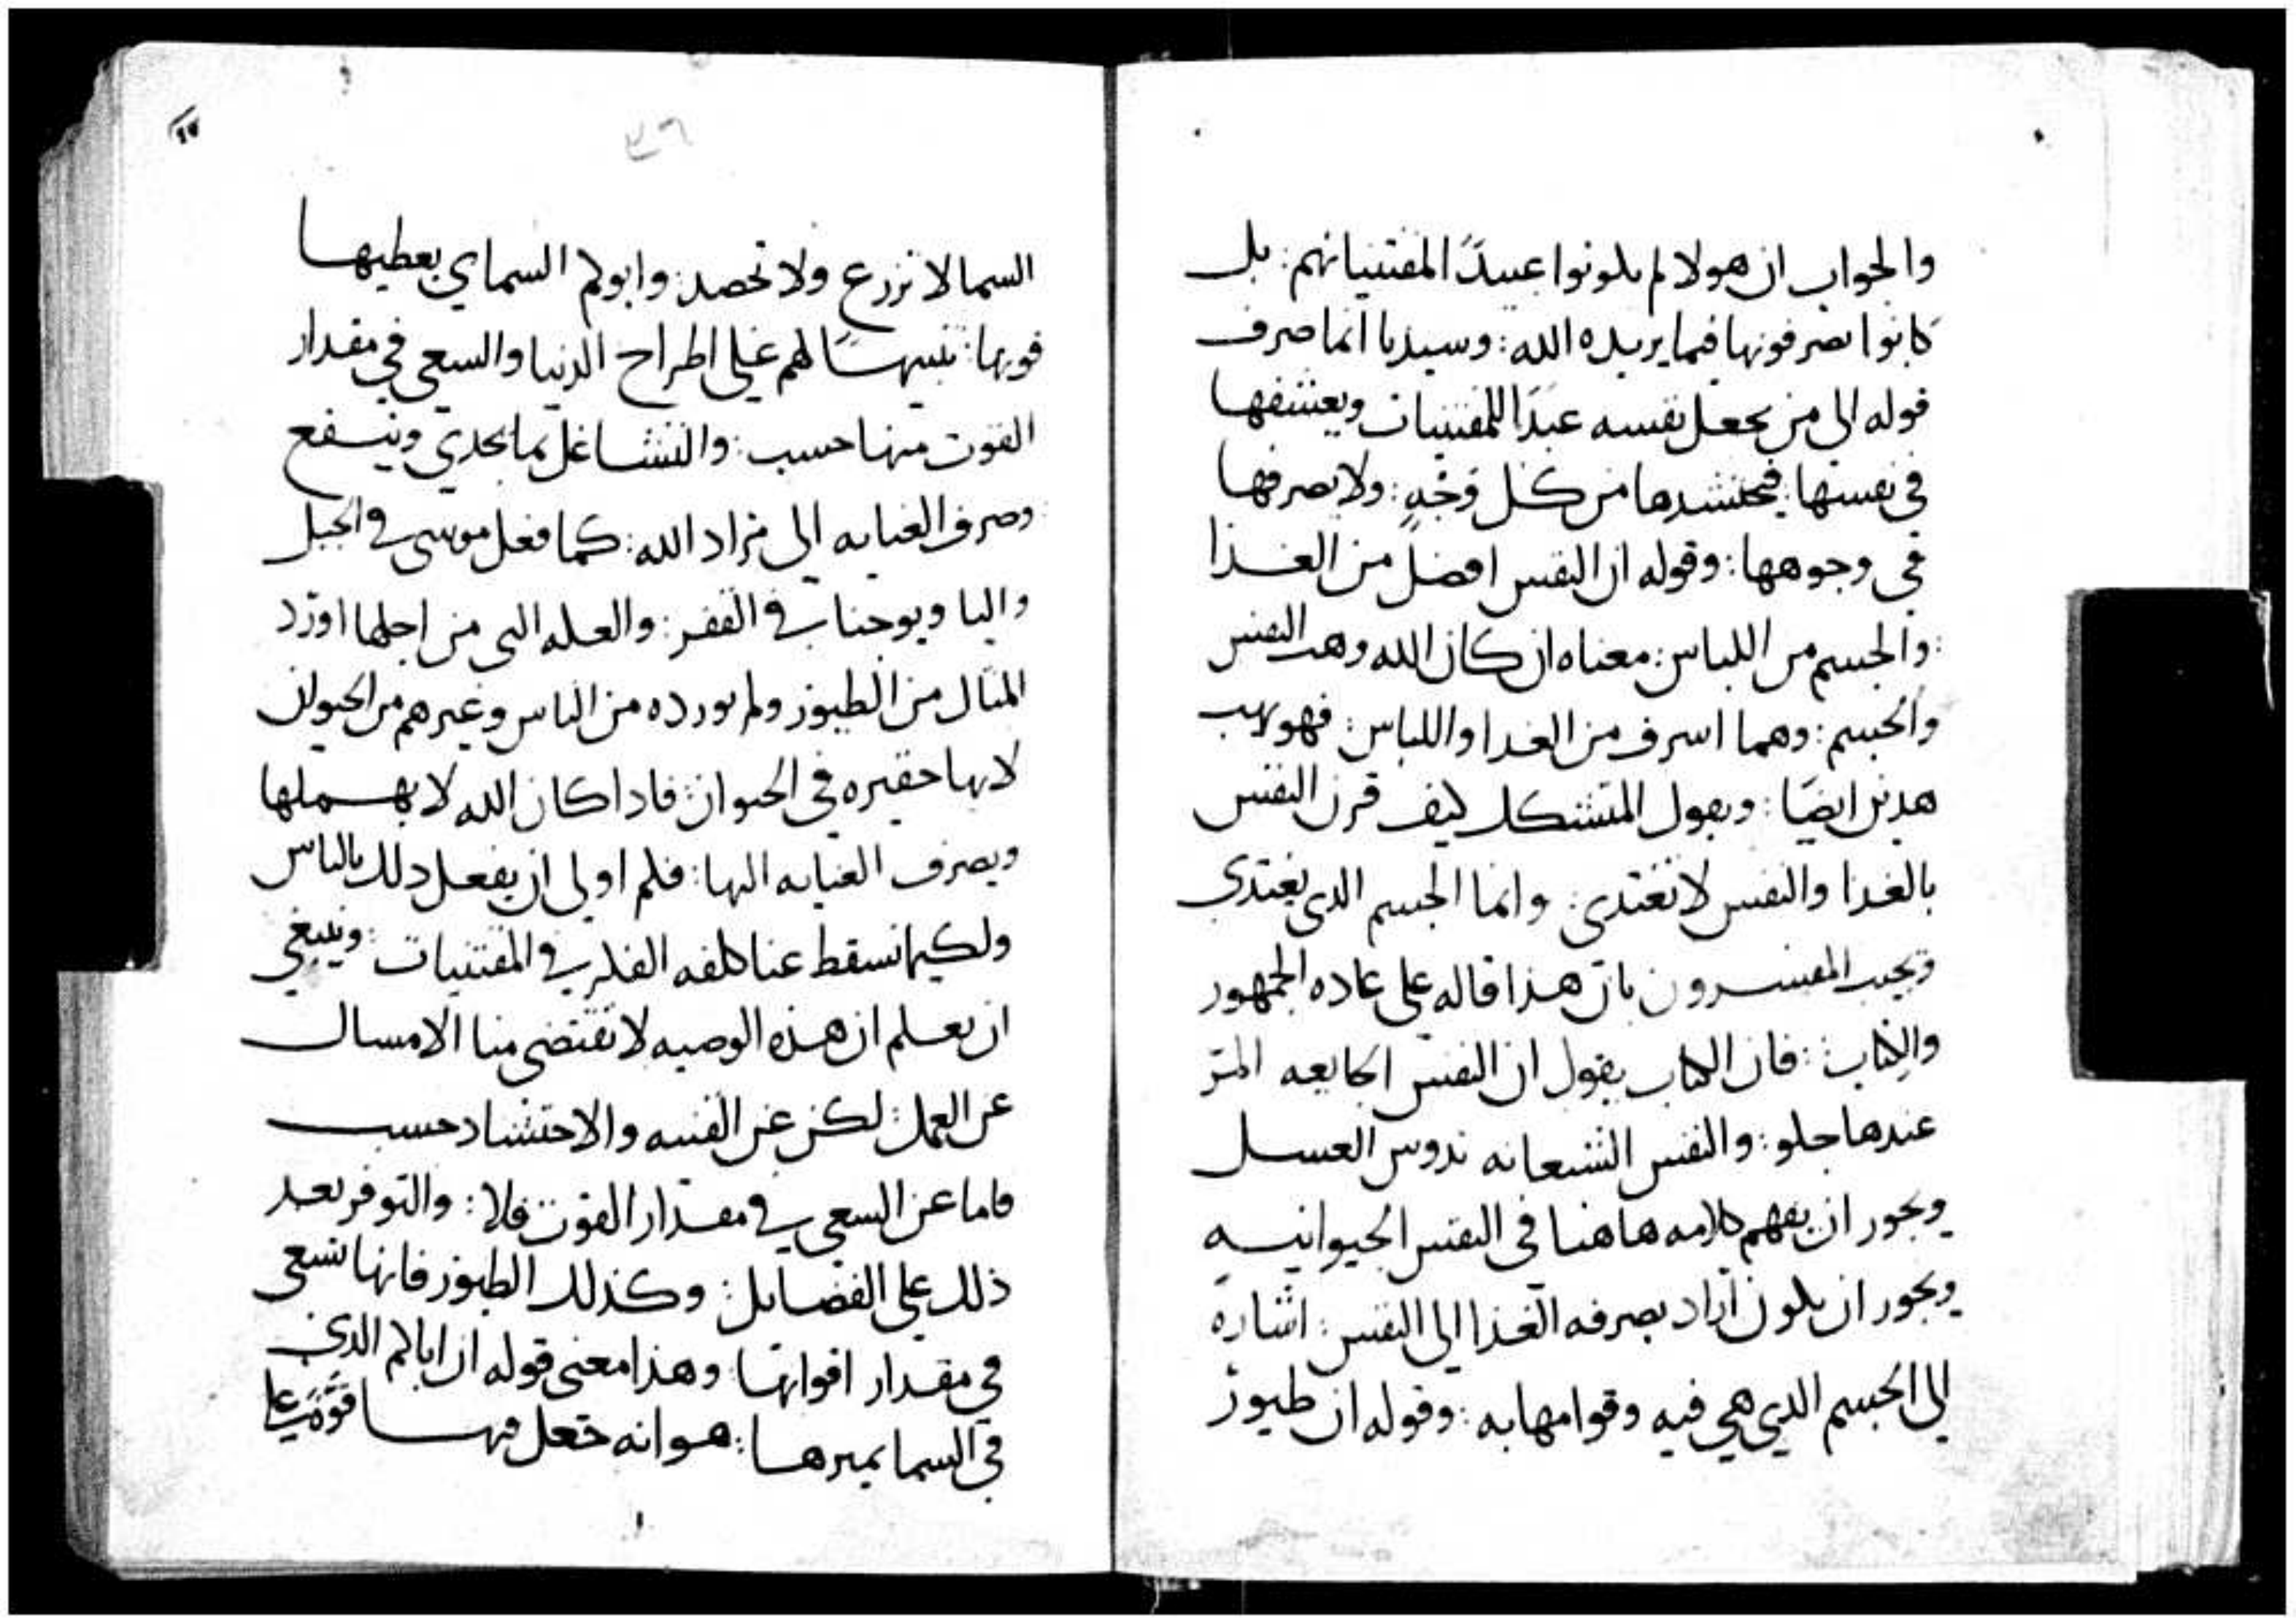 والجواب ان هولا لم يكونوا عبيدًا لمقتنياتهم: بل
كانوا يصرفونها فيما يريده الله: وسيدنا انما صرف
قوله الى من يجعل نفسه عبدًا للمقتنيات ويعشقها
في نفسها: فيحتشدها من كل وَجْهٍ: ولا يصرفها
في وجوهها: وقوله ان النفس افضل من الغذا
والجسم من اللباس: معناه ان كان الله وهب النفس
والجسم: وهما اشرف من الغدا واللباس: فهو يهب
هدين ايضًا: ويقول المتشكك كيف قرن النفس
بالغذا والنفس لا تغتدي: وانما الجسم الدي يغتدي
ويجيب المفسرون بان هذا قاله على عاده الجمهور
والكتاب: فان الكتاب يقول ان النفس الجايعه المرّ
عندها حلو: والنفس الشبعانه تدوس العسل
ويجوز ان يفهم كلامه هاهنا في النفس الحيوانيه
ويجوز ان يكون اراد بصرفه الغذا الى النفس: اشارة
الى الجسم الدي هي فيه وقوامها به: وقوله ان طيور
٣٦
السما لا تزرع ولا تحصد: وابوكم السماي يعطيها
قوتها: تنبيهًا لهم على اطراح الدنيا والسعي في مقدار
القوت منها حسب: والتشاغل بما يجدي وينفع
وصرف العنايه الى مراد الله: كما فعل موسى في الجبل
واليا ويوحنا في القفر: والعله التي من اجلها اورد
المثال من الطيور ولم يورده من الناس وغيرهم من الحيوان
لانها حقيره في الحيوان: فادا كان الله لا يهملها
ويصرف العنايه اليها: فكم اولى ان يفعل دلك بالناس
ولكيما تسقط عنا كلفه الفكر في المقتنيات: وينبغي
ان يعلم ان هذه الوصيه لا تقتضي منا الامساك
عن العمل: لكن عن القنيه والاحتشاد حسب
فاما عن السعي في مقدار القوت فلا: والتوفر بعد
ذلك على الفضايل: وكذلك الطيور فانها تسعى
في مقدار اقواتها: وهذا معنى قوله ان اباكم الدي
في السما يميرها: هو انه جعل فيها قوّة على